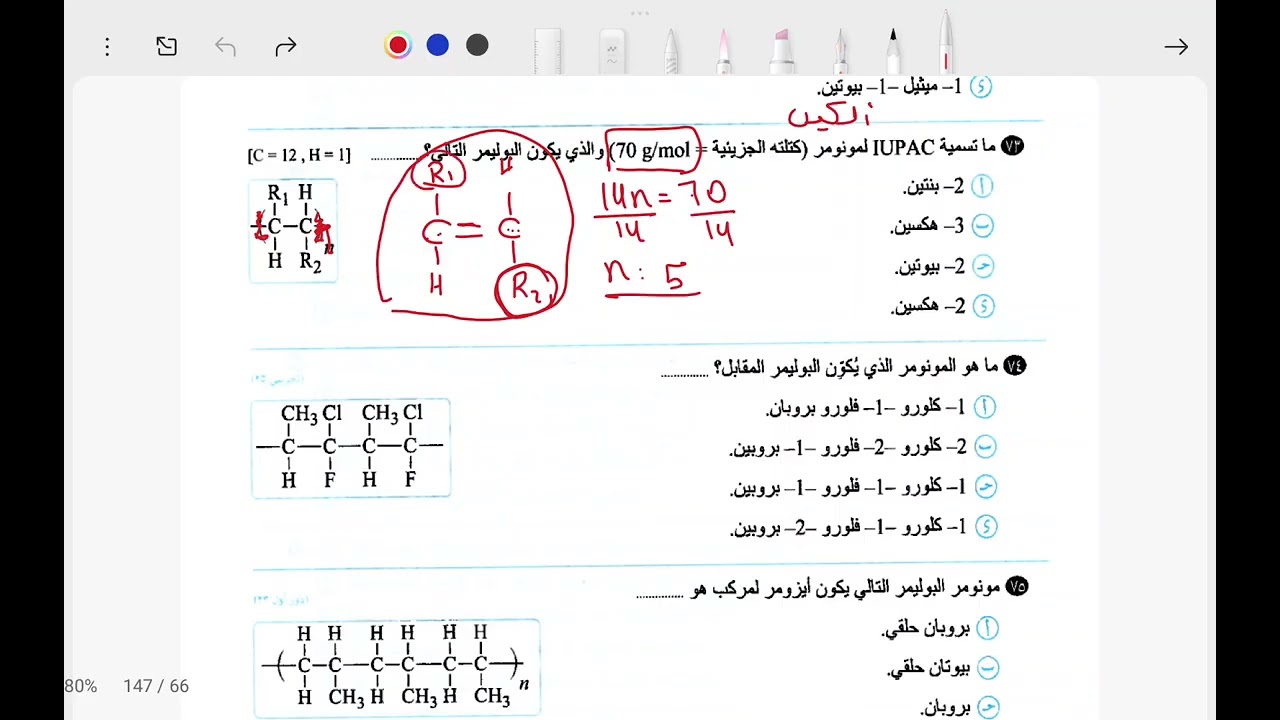 د 1– ميثيل –1– بيوتين.
ألكين
٧٣ ما تسمية IUPAC لمونومر (كتلته الجزيئية = 70 g/mol) والذي يكون البوليمر التالي؟ .............. [C = 12 , H = 1]
أ 2– بنتين.
ب 3– هكسين.
ج 2– بيوتين.
د 2– هكسين.
R1 H
C–C
H R2
n
R1 H
C = C
H R2
14n = 70
14 14
n : 5
٧٤ ما هو المونومر الذي يُكوِّن البوليمر المقابل؟ ..............
أ 1– كلورو –1– فلورو بروبان.
ب 2– كلورو –2– فلورو –1– بروبين.
ج 1– كلورو –1– فلورو –1– بروبين.
د 1– كلورو –1– فلورو –2– بروبين.
CH3 Cl CH3 Cl
–C–C–C–C–
H F H F
٧٥ مونومر البوليمر التالي يكون أيزومر لمركب هو ..............
أ بروبان حلقي.
ب بيوتان حلقي.
ج بروبان.
H H H H H H
–(C–C–C–C–C–C)–n
H CH3 H CH3 H CH3
80% 147 / 66